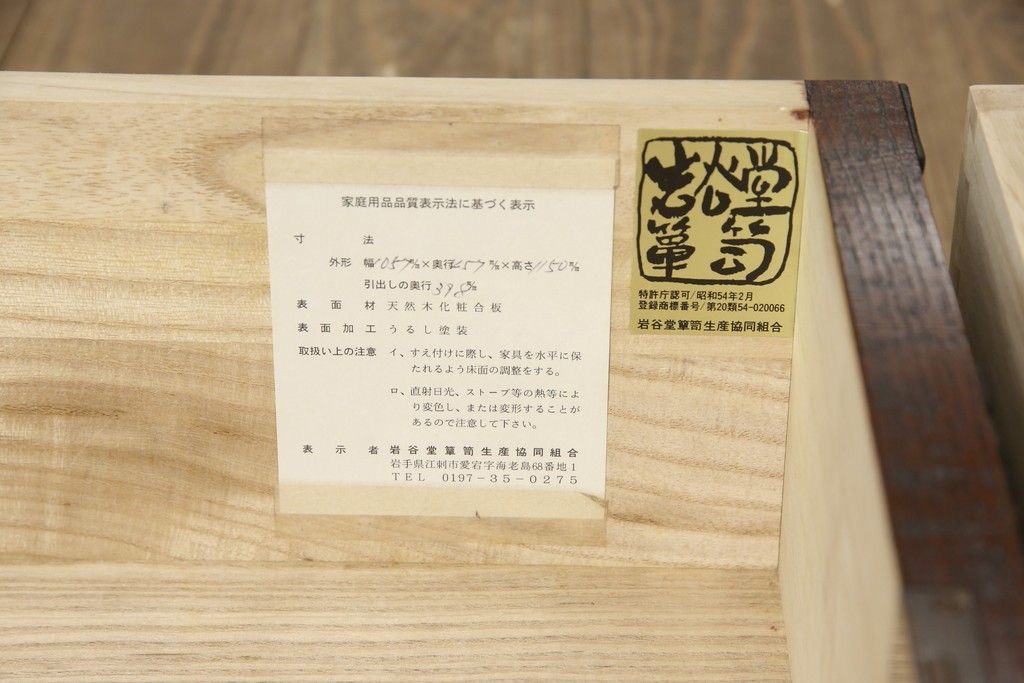 家庭用品品質表示法に基づく表示
寸法
外形 幅1057㎜×奥行457㎜×高さ1150㎜
引出しの奥行398㎜
表面材 天然木化粧合板
表面加工 うるし塗装
取扱い上の注意 イ、すえ付けに際し、家具を水平に保
たれるよう床面の調整をする。
ロ、直射日光、ストーブ等の熱等によ
り変色し、または変形することが
あるので注意して下さい。
表示者 岩谷堂簞笥生産協同組合
岩手県江刺市愛宕字海老島68番地1
TEL 0197-35-0275
岩谷堂
簞笥
特許庁認可/昭和54年2月
登録商標番号/第20類54-020066
岩谷堂簞笥生産協同組合